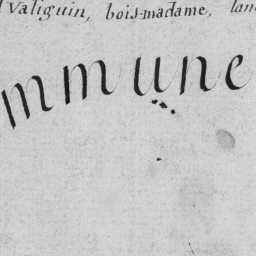 Valiguin, bois-madame, lan
mmune